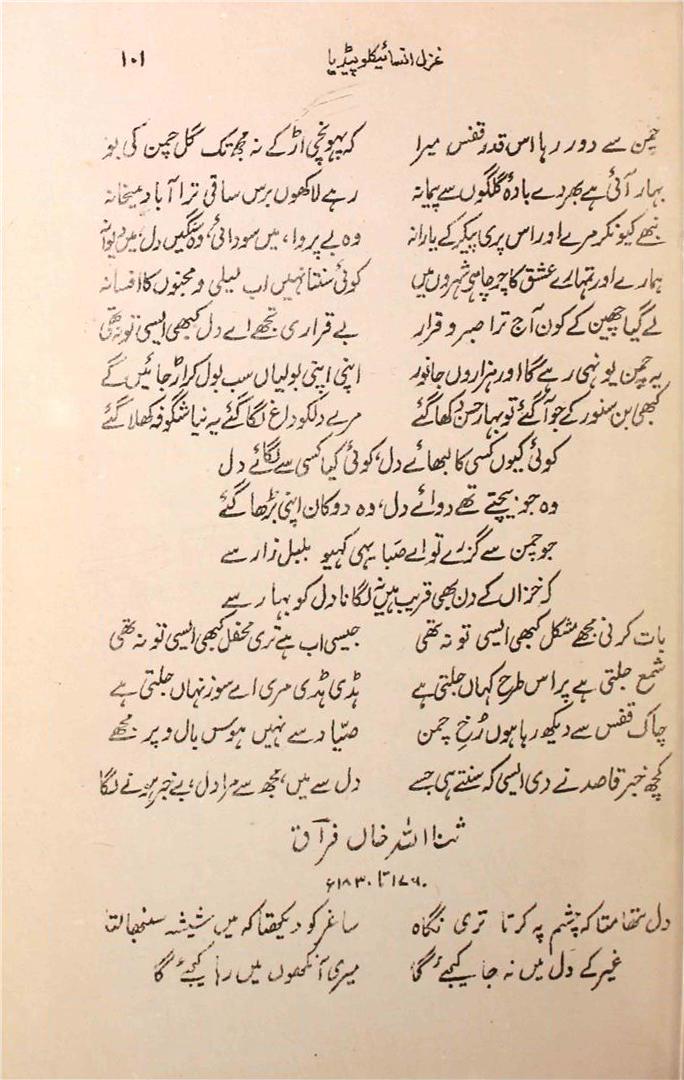 غزل انسائیکلوپیڈیا ۱۰۱
چمن سے دور رہا اس قدر قفس میرا کہ پہونچی اڑ کے نہ مجھ تک گل چمن کی بو
بہار آئی ہے بھر دے بادۂ گلگوں سے پیمانہ رہے لاکھوں برس ساقی ترا آباد میخانہ
نبھے کیونکر مرے اور اس پری پیکر کے یارانہ وہ بے پروا، میں سودائی، وہ سنگیں دل، میں دیوانہ
ہمارے اور تمہارے عشق کا چرچا ہی شہروں میں کوئی سنتا نہیں اب لیلی و مجنوں کا افسانہ
لے گیا چھین کے کون آج ترا صبر و قرار بے قراری تجھے اے دل کبھی ایسی تو نہ تھی
یہ چمن یونہی رہے گا اور ہزاروں جانور اپنی اپنی بولیاں سب بول کر اڑ جائیں گے
کبھی بن سنور کے جو آگئے تو بہار حسن دکھا گئے مرے دلکو داغ لگا گئے یہ نیا شگوفہ کھلا گئے
کوئی کیوں کسی کا لبھائے دل، کوئی کیا کسی سے لگائے دل
وہ جو بیچتے تھے دوائے دل، وہ دوکان اپنی بڑھا گئے
جو چمن سے گزرے تو اے صبا یہی کہیو بلبل زار سے
کہ خزاں کے دن بھی قریب ہیں نہ لگانا دل کو بہار سے
بات کرنی مجھے مشکل کبھی ایسی تو نہ تھی جیسی اب ہے تری محفل کبھی ایسی تو نہ تھی
شمع جلتی ہے پر اس طرح کہاں جلتی ہے ہڈی ہڈی مری اے سوز نہاں جلتی ہے
چاک قفس سے دیکھ رہا ہوں رُخِ چمن صیّاد سے نہیں ہوس بال و پر مجھے
کچھ خبر قاصد نے دی ایسی کہ سنتے ہی جسے دل سے میں، مجھ سے مرا دل، بے خبر ہونے لگا
ثناء اللہ خاں فراق
۱۷۶۰ تا ۱۸۳۰ء
دل تھامتا کہ چشم پہ کرتا تری نگاہ ساغر کو دیکھتا کہ میں شیشہ سنبھالتا
غیر کے دل میں نہ جا کیجئے گا میری آنکھوں میں رہا کیجئے گا